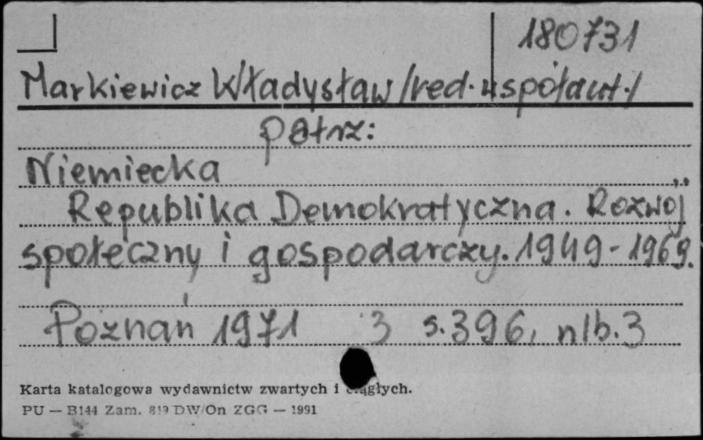 180731
Markiewicz Władysław /red. współaut./
patrz:
Niemiecka
Republika Demokratyczna. Rozwój
społeczny i gospodarczy. 1949-1969.
Poznań 1971 3 s. 396, nlb. 3
Karta katalogowa wydawnictw zwartych i ciągłych.
PU — B144 Zam. 819 DW/On ZGG — 1991